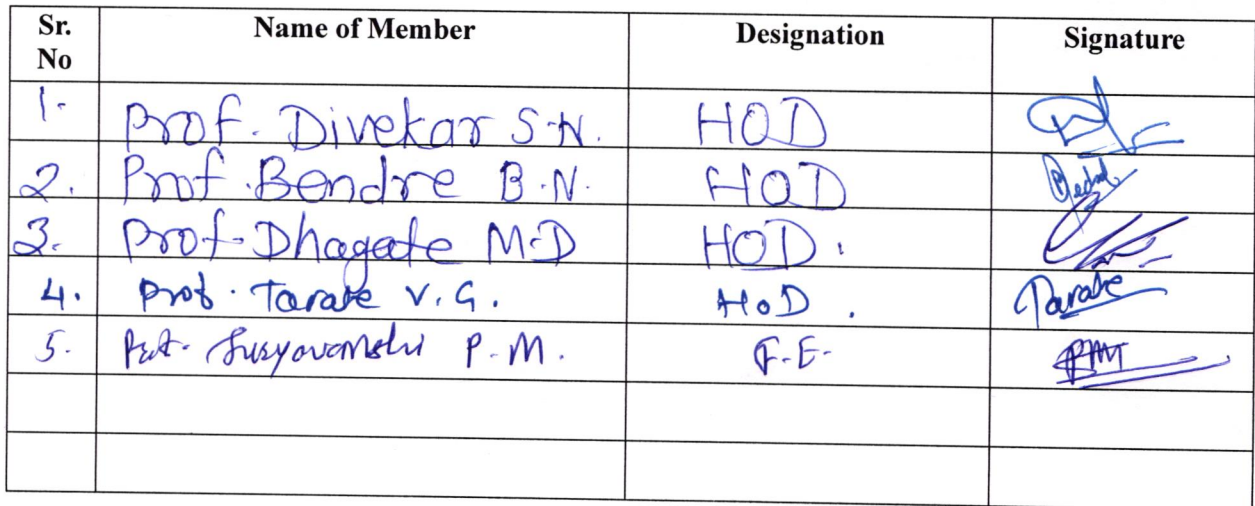 Sr. No Name of Member Designation Signature
1. Prof. Divekar S.N. HOD
2. Prof. Bendre B.N. HOD
3. Prof. Dhagate M.D HOD.
4. Prof. Tarate V.G. HoD. Tarate
5. Prof. Suryavanshi P.M. F.E. PM